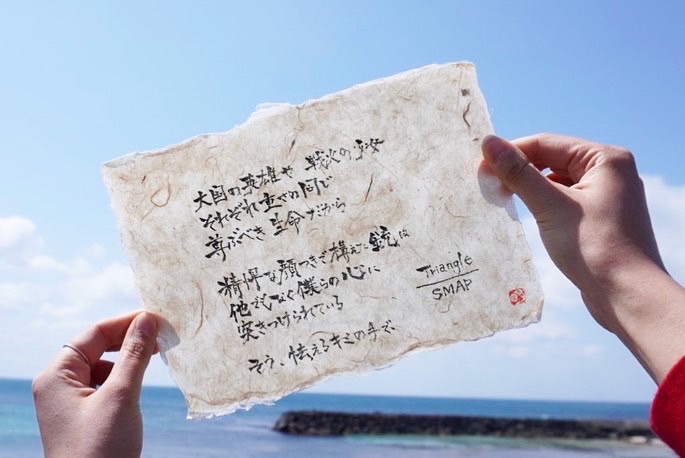 大国の英雄や 戦火の少女
それぞれ重さの同じ
尊ぶべき 生命だから
精悍な顔つきで構えた銃は
他でもなく僕らの心に
突きつけられている
そう、怯えるキミの手で
Triangle
SMAP